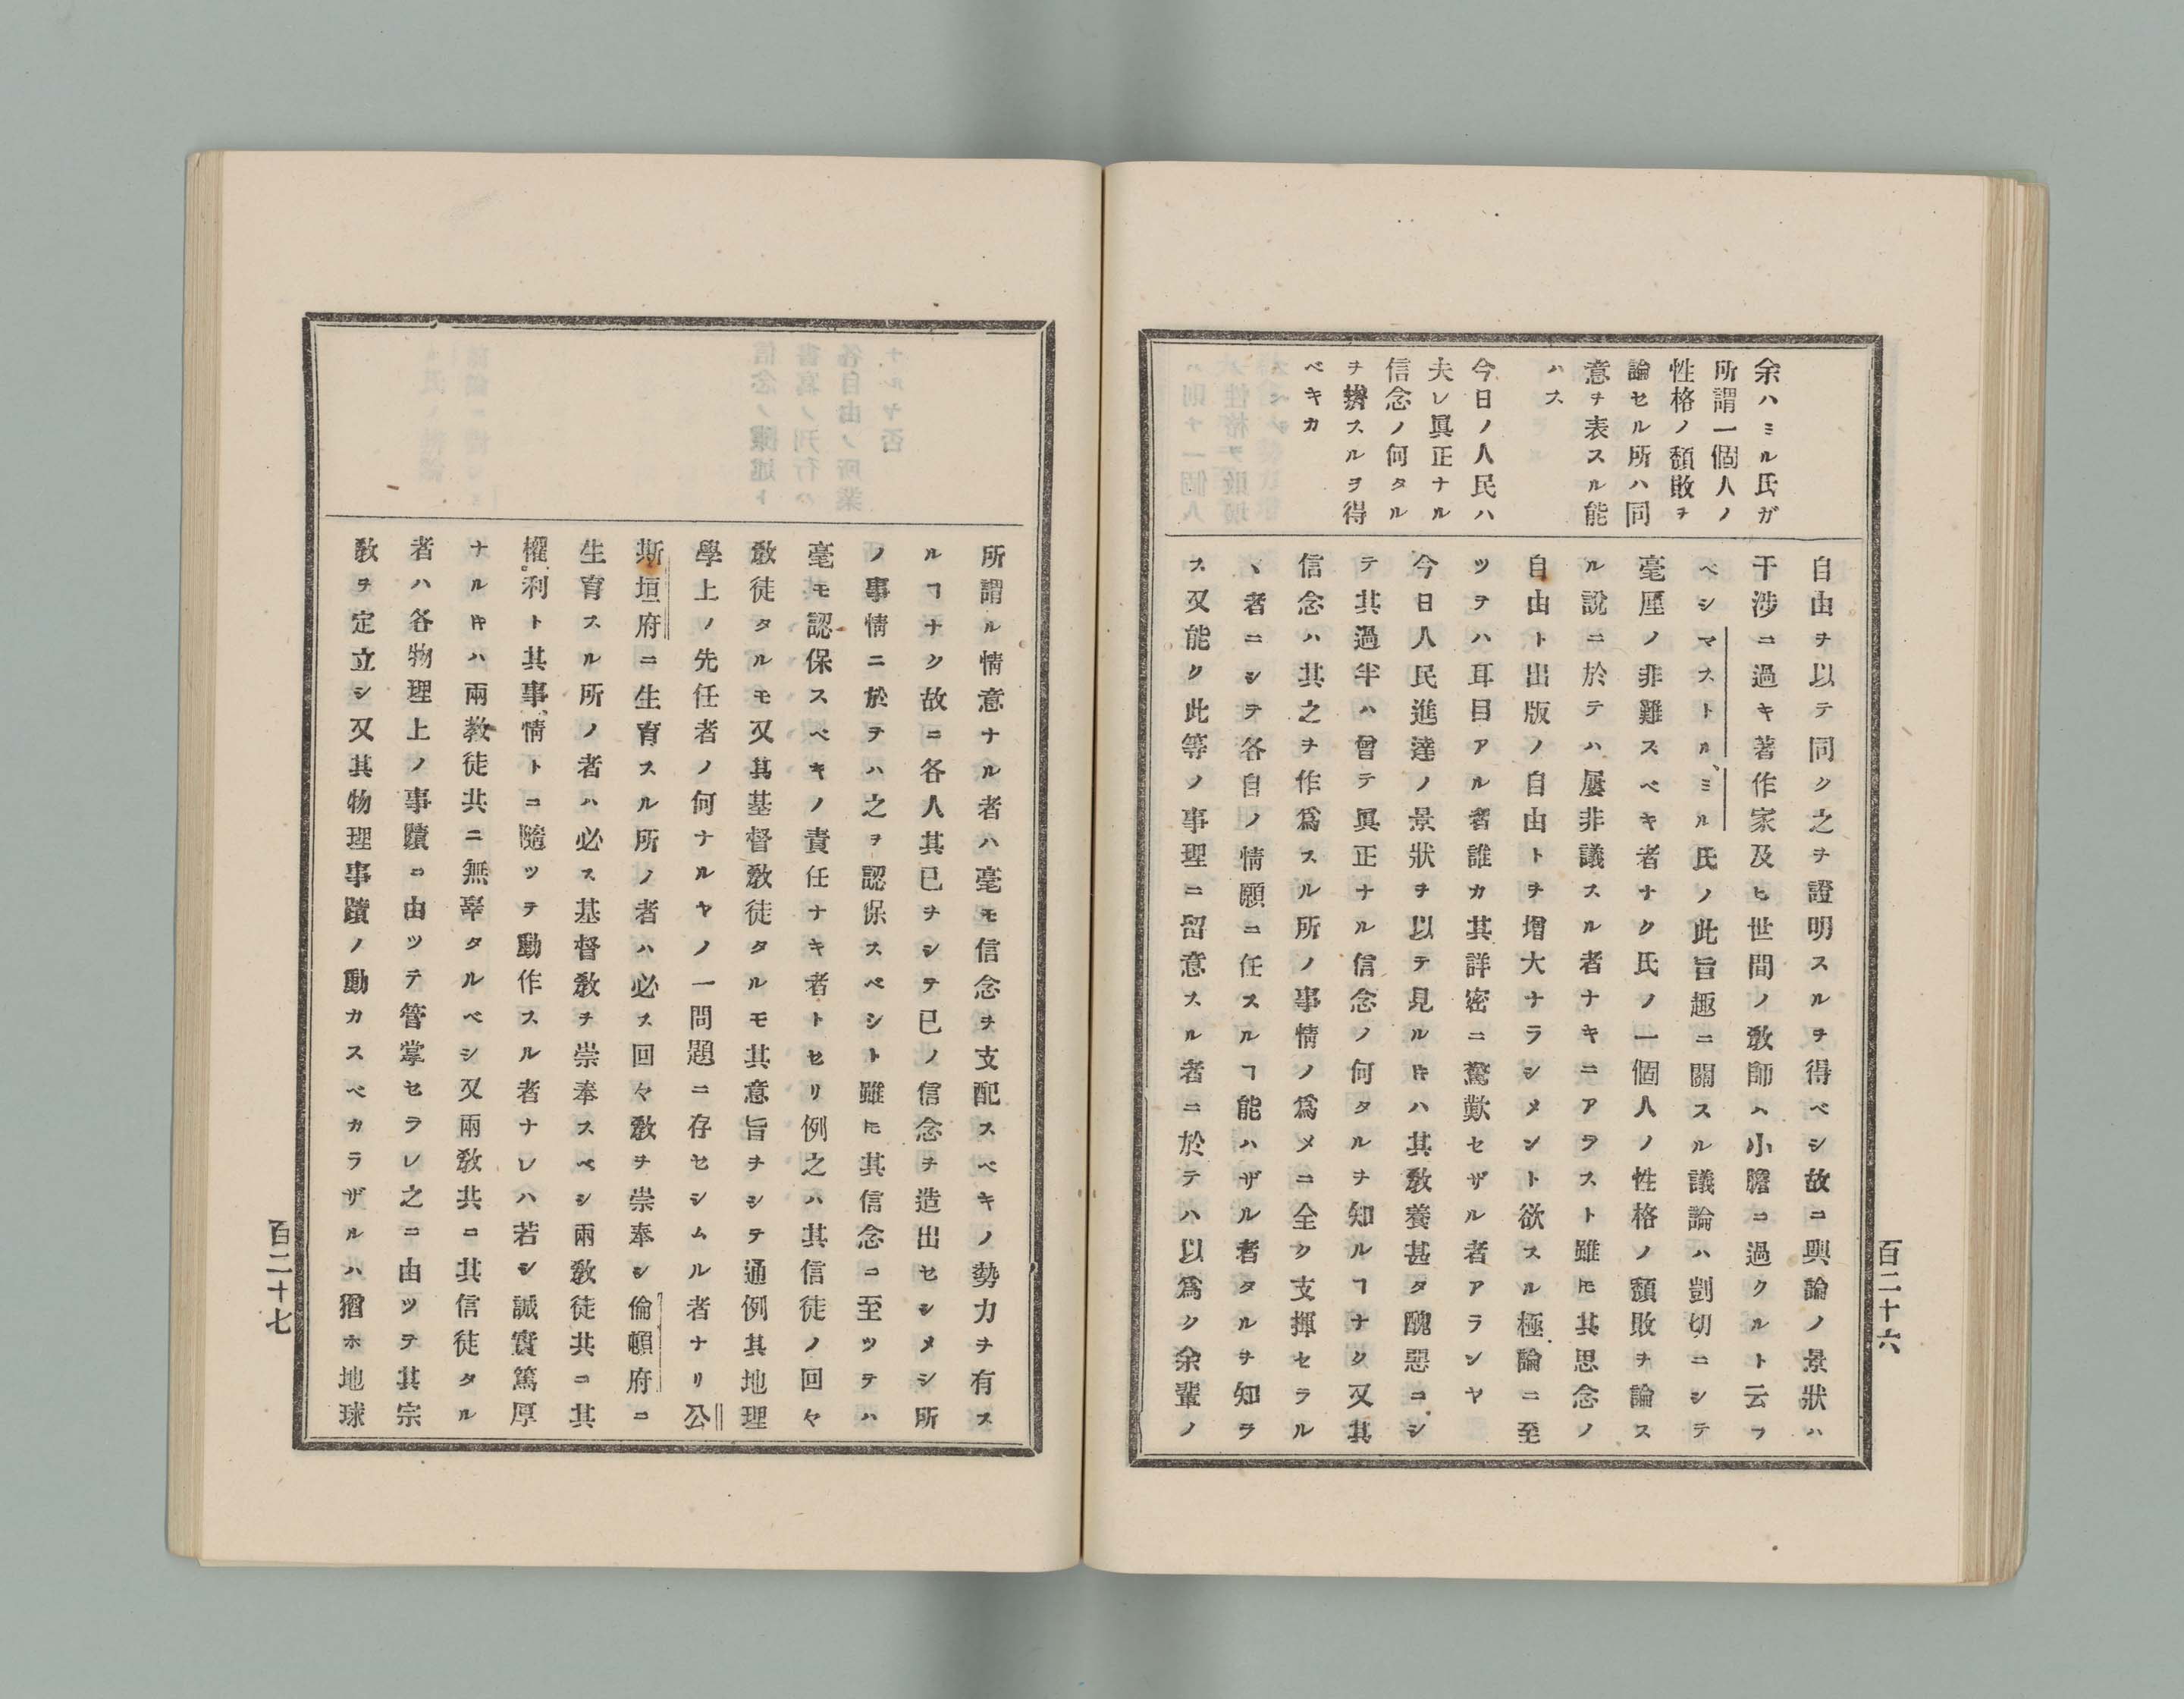 余ハミル氏ガ
所謂一個人ノ
性格ノ頽敗ヲ
論セル所ハ同
意ヲ表スル能
ハス
今日ノ人民ハ
夫レ眞正ナル
信念ノ何タル
ヲ辨スルヲ得
ベキカ
自由ヲ以テ同ク之ヲ證明スルヲ得ベシ故ニ輿論ノ景狀ハ
干涉ニ過キ著作家及ヒ世間ノ敎師ハ小膽ニ過クルト云フ
ベシマストルミル氏ノ此旨趣ニ關スル議論ハ剴切ニシテ
毫厘ノ非難スベキ者ナク氏ノ一個人ノ性格ノ頽敗ヲ論ス
ル說ニ於テハ屢非議スル者ナキニアラスト雖𪜈其思念ノ
自由ト出版ノ自由トヲ增大ナラシメント欲スル極論ニ至
ツテハ耳目アル者誰カ其詳密ニ驚歎セザル者アランヤ
今日人民進達ノ景狀ヲ以テ見ル𪜈ハ其敎養甚タ醜惡ニシ
テ其過半ハ曾テ眞正ナル信念ノ何タルヲ知ルヿナク又其
信念ハ其之ヲ作爲スル所ノ事情ノ爲メニ全ク支揮セラル
ヽ者ニシテ各自ノ情願ニ任スルヿ能ハザル者タルヲ知ラ
ス又能ク此等ノ事理ニ留意スル者ニ於テハ以爲ク余輩ノ
百二十六
所謂ル情意ナル者ハ毫モ信念ヲ支配スベキノ勢力ヲ有ス
ルヿナク故ニ各人其已ヲシテ已ノ信念ヲ造出セシメシ所
ノ事情ニ於テハ之ヲ認保スベシト雖𪜈其信念ニ至ツテハ
毫モ認保スベキノ責任ナキ者トセリ例之ハ其信徒ノ回々
敎徒タルモ又其基督敎徒タルモ其意旨ヲシテ通例其地理
學上ノ先任者ノ何ナルヤノ一問題ニ存セシムル者ナリ公
斯垣府ニ生育スル所ノ者ハ必ス回々敎ヲ崇奉シ倫頓府ニ
生育スル所ノ者ハ必ス基督敎ヲ崇奉スベシ兩敎徒共ニ其
權利ト其事情トニ隨ツテ動作スル者ナレハ若シ誠實篤厚
ナル𪜈ハ兩敎徒共ニ無辜タルベシ又兩敎共ニ其信徒タル
者ハ各物理上ノ事蹟ニ由ツテ管掌セラレ之ニ由ツテ其宗
敎ヲ定立シ又其物理事蹟ノ動カスベカラザルハ猶ホ地球
百二十七